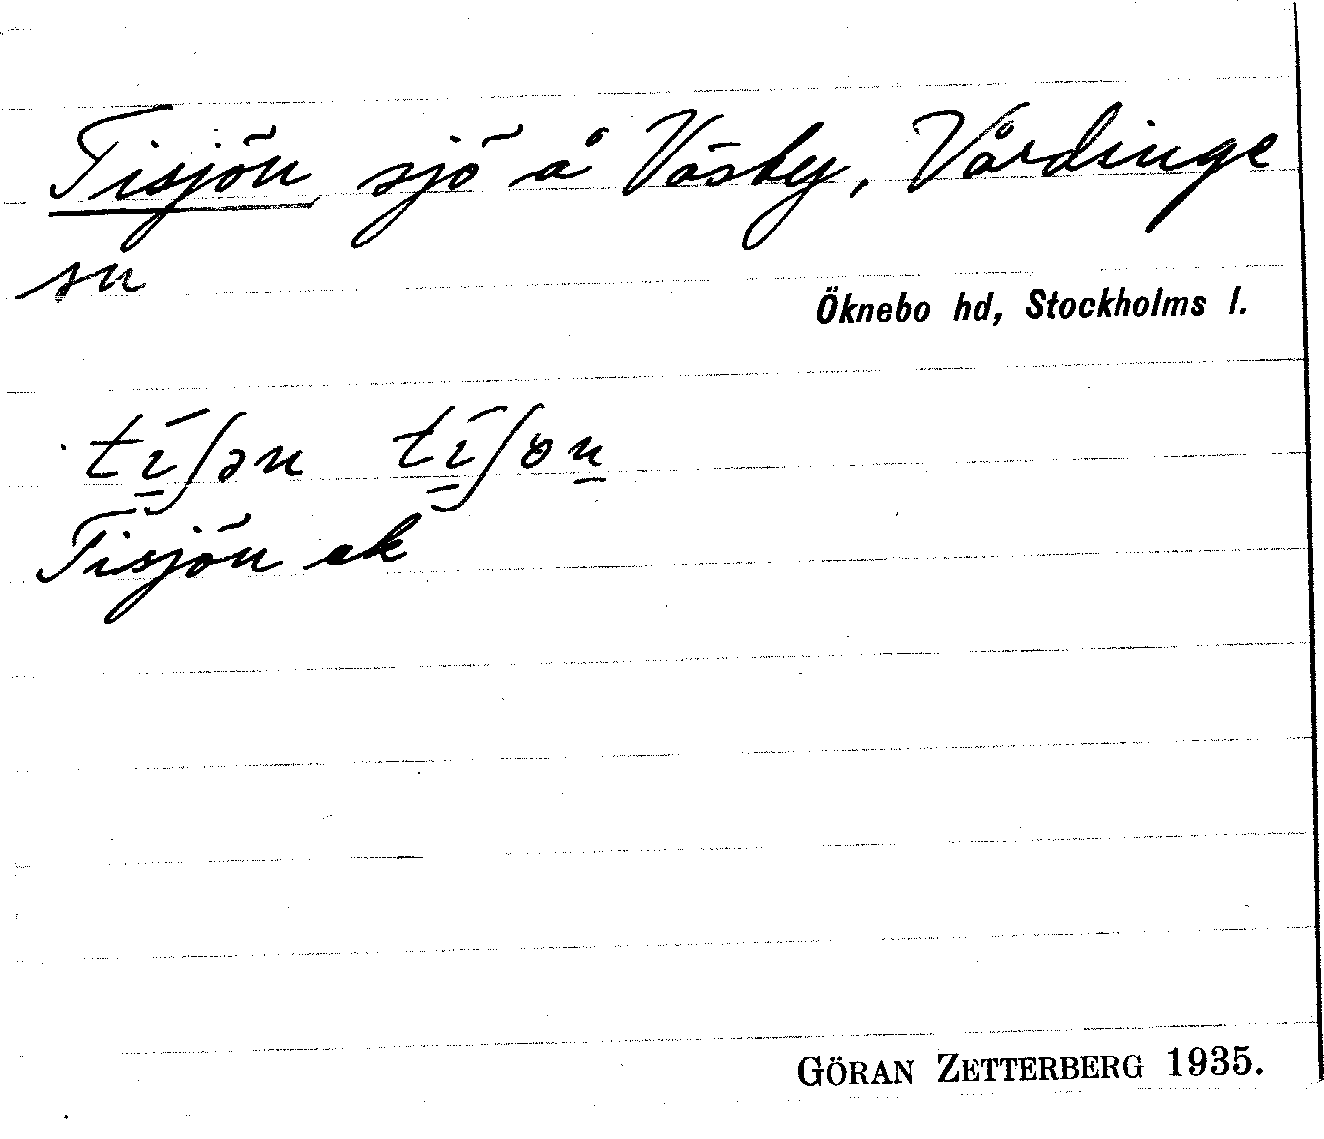 Tisjön, sjö å Väsby, Vårdinge
sn
Öknebo hd, Stockholms l.
tɪ́ʃən tɪ́ʃɵn
Tisjön ek
GÖRAN ZETTERBERG 1935.